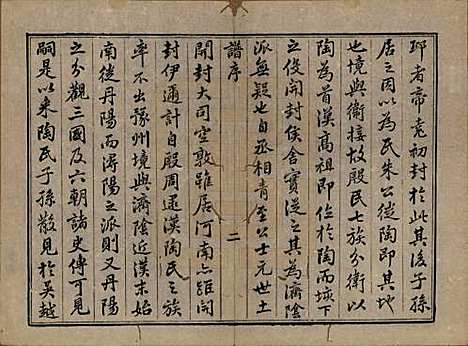 邱者帝堯初封於此其後子孫
居之因以為氏朱公從陶即其地
也境與衛接故殷民七族分衛以
陶為首漢高祖即位於陶而垓下
之後開封侯舍實從之其為濟陰
派無疑也自丞相青至公士元世土
譜序
二
開封大司空敦雖居河南亦雖開
封伊邇計自殷周迄漢陶民之族
率不出豫州境與濟陰近漢末始
南徙丹陽而潯陽之派則又丹陽
之分觀三國及六朝諸史傳可見
嗣是以來陶氏子孫散見於吳越